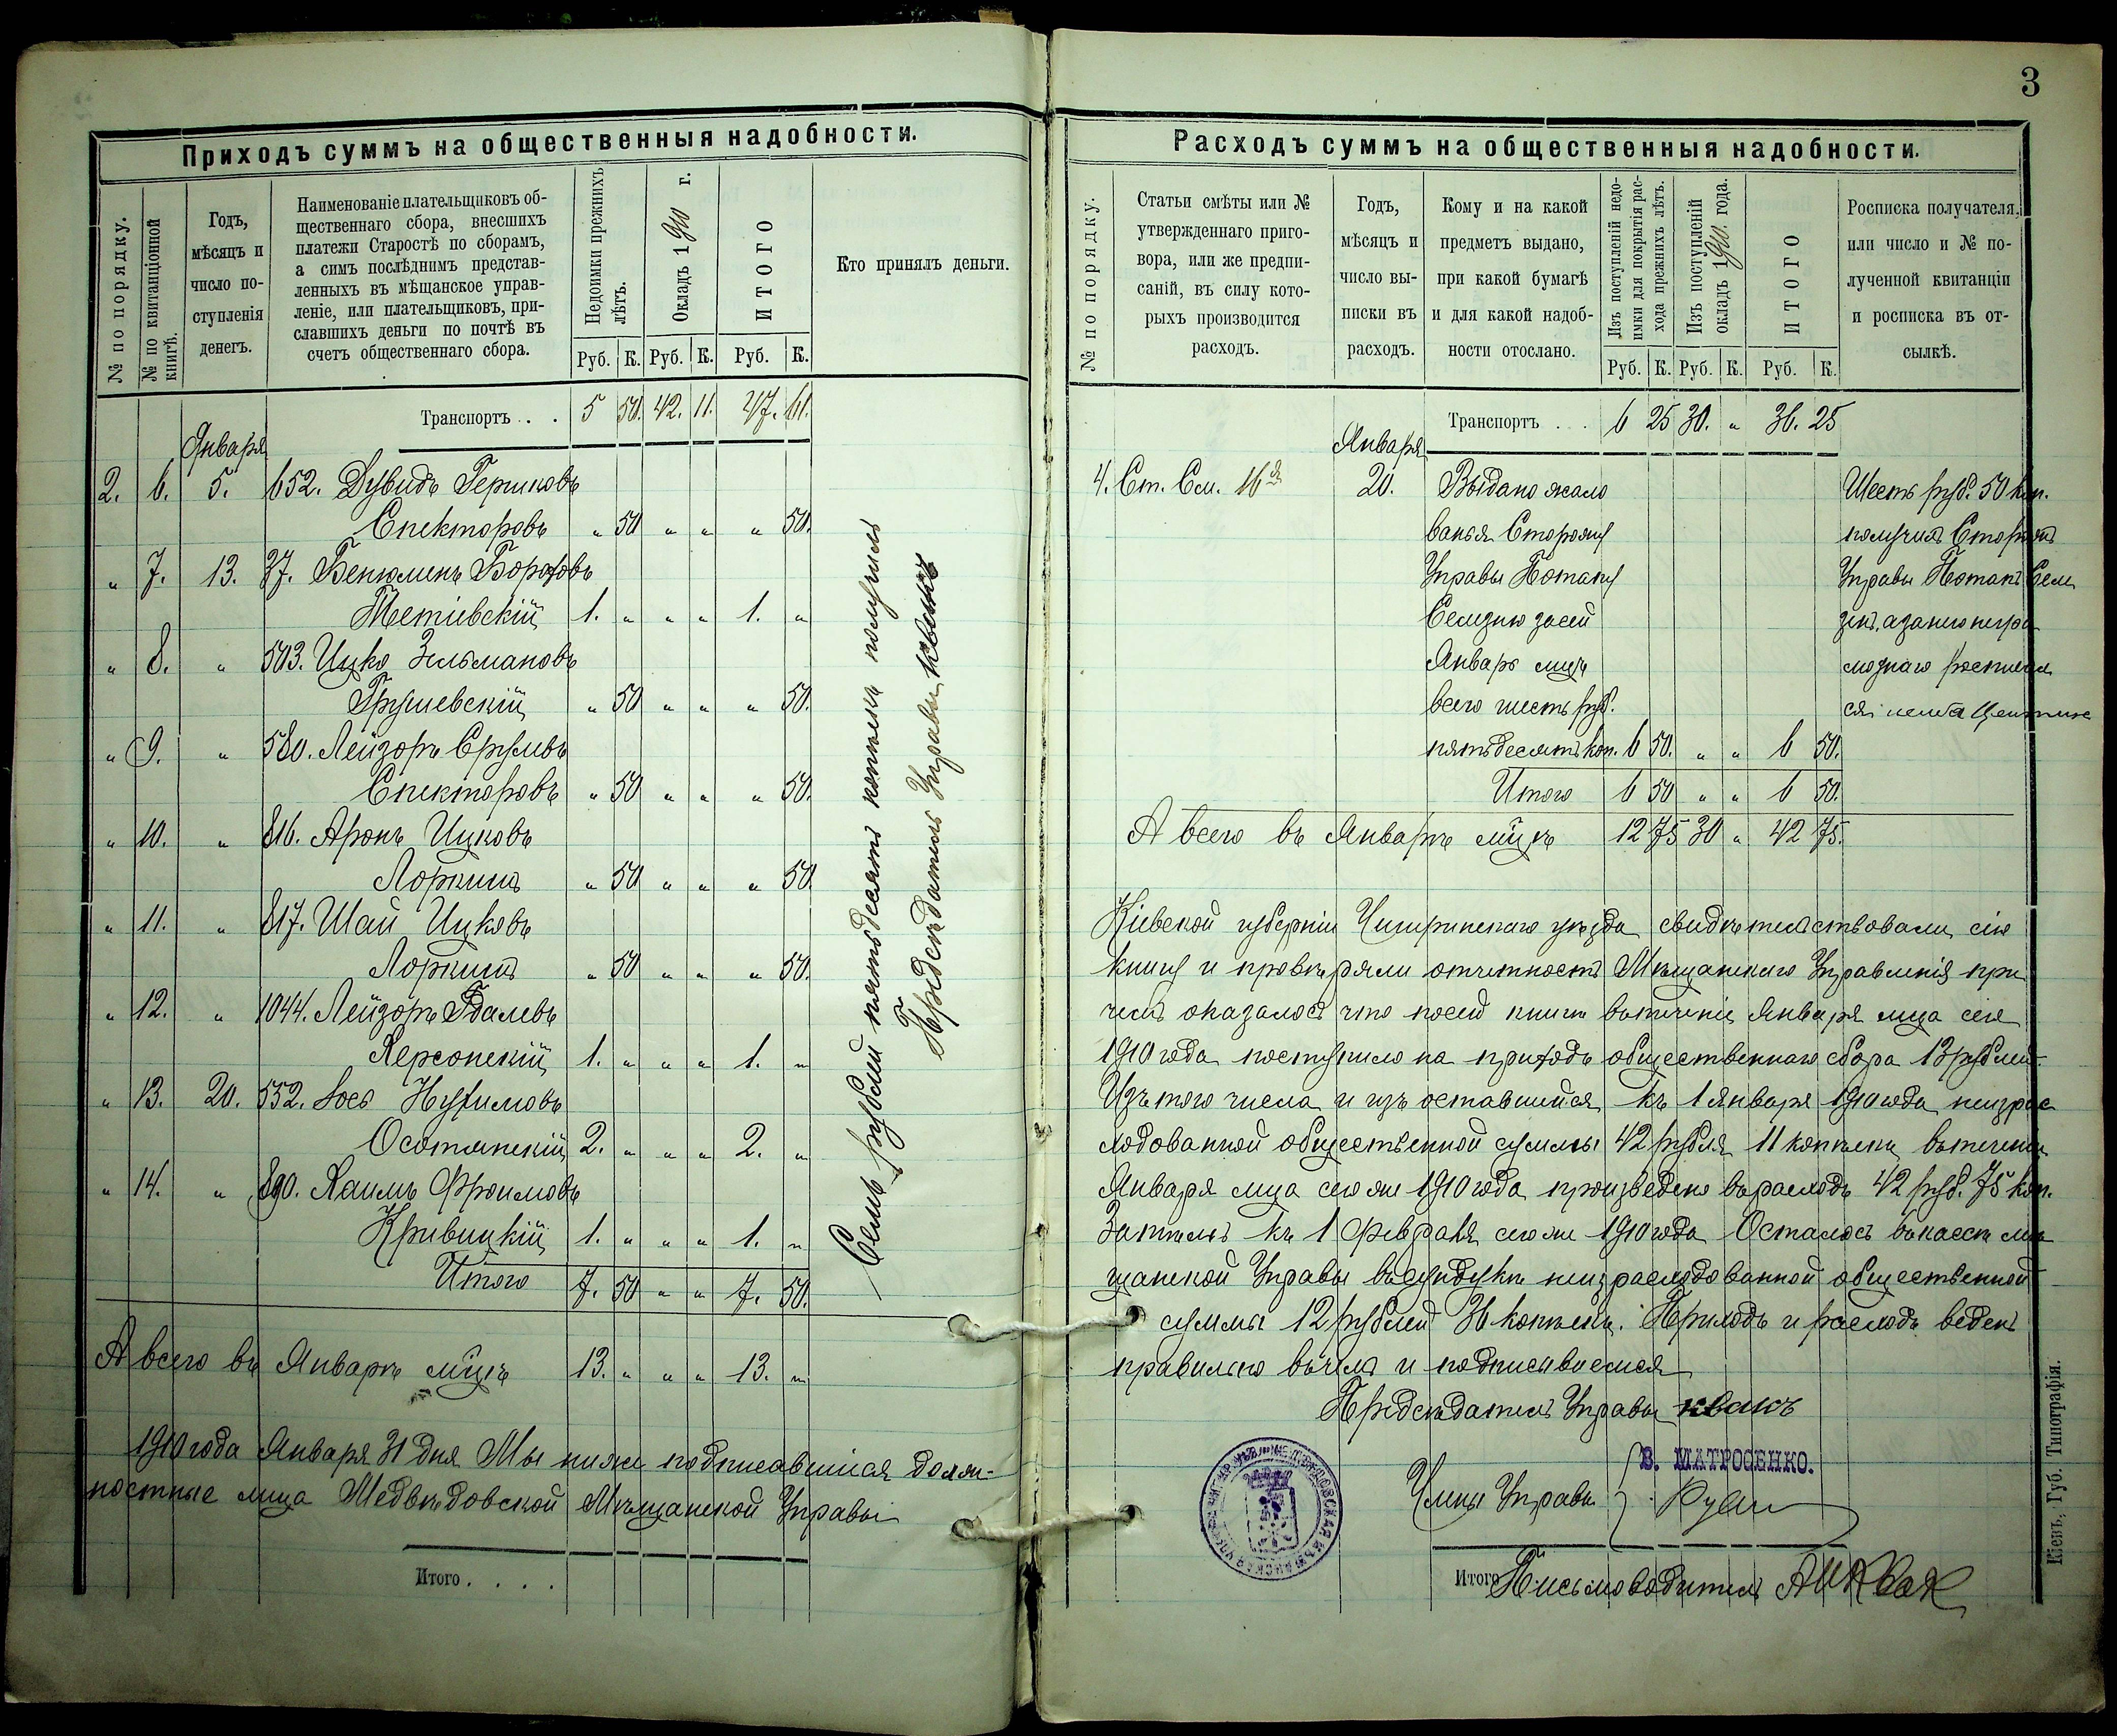 Приходъ суммъ на общественныя надобности.
№ по порядку.
№ по квитанціонной книгѣ.
Годъ,
мѣсяцъ и
число по-
ступленія
денегъ.
Наименованіе плательщиковъ об-
щественнаго сбора, внесшихъ
платежи Старостѣ по сборамъ,
а симъ послѣднимъ представ-
ленныхъ въ мѣщанское управ-
леніе, или плательщиковъ, при-
славшихъ деньги по почтѣ въ
счетъ общественнаго сбора.
Недоимки прежнихъ лѣтъ.
Окладъ 1910 г.
ИТОГО
Кто принялъ деньги.
Руб. К. Руб. К. Руб. К.
Транспортъ . . . 5 50. 42. 11. 47. 61.
Января
2. 6. 5. 652. Дувидъ Гершковъ
Спекторовъ „ 50 „ „ „ 50.
„ 7. 13. 37. Бенюминъ Бороховъ
Тетіевскій 1. „ „ „ 1. „
„ 8. „ 503. Ицко Зельмановъ
Грушевскій „ 50 „ „ „ 50.
„ 9. „ 580. Лейзоръ Срулевъ
Спекторовъ „ 50 „ „ „ 50.
„ 10. „ 816. Аронъ Ицковъ
Лоркишъ „ 50 „ „ „ 50.
„ 11. „ 817. Шай Ицковъ
Лоркишъ „ 50 „ „ „ 50.
„ 12. „ 1044. Лейзоръ Гдалевъ
Херсонскій 1. „ „ „ 1. „
„ 13. 20. 552. Іосъ Нухимовъ
Осотянскій 2. „ „ „ 2. „
„ 14. „ 890. Хаимъ Фроимовъ
Кривицкій 1. „ „ „ 1. „
Итого 7. 50 „ „ 7. 50.
Семь рублей пятьдесятъ копѣекъ получилъ
Предсѣдатель Управы
А всего въ Январѣ мцѣ 13. „ „ „ 13. „
1910 года Января 31 дня Мы ниже подписавшіеся долж-
ностные лица Медвѣдовской Мѣщанской Управы
Итого . . . .
3
Расходъ суммъ на общественныя надобности.
№ по порядку.
Статьи смѣты или №
утвержденнаго приго-
вора, или же предпи-
саній, въ силу кото-
рыхъ производится
расходъ.
Годъ,
мѣсяцъ и
число вы-
писки въ
расходъ.
Кому и на какой
предметъ выдано,
при какой бумагѣ
и для какой надоб-
ности отослано.
Изъ поступленій недо-
имки для покрытія рас-
хода прежнихъ лѣтъ.
Изъ поступленій
окладъ 1910. года.
ИТОГО
Росписка получателя,
или число и № по-
лученной квитанціи
и росписка въ от-
сылкѣ.
Руб. К. Руб. К. Руб. К.
Транспортъ . . . 6 25 30. „ 36. 25
Января
4. Ст. См. 16я 20. Выдано жало Шесть руб. 50 коп.
ванья Сторожу получилъ Сторожъ
Управы Потапу Управы Потапъ
за сей а за него негра
Январь мцъ мотнаго росписал
всего шесть руб. ся
пятьдесятъ коп. 6 50. „ „ 6 50.
Итого 6 50 „ „ 6 50.
А всего въ Январѣ мцѣ 12 75 30 „ 42 75.
Кіевской губерніи Чигиринскаго уѣзда свидѣтельствовали сію
книгу и провѣряли отчетность Мѣщанскаго Управленія при
чемъ оказалось что по сей книгѣ въ теченіи Января мца сего
1910 года поступило на приходъ общественнаго сбора 13 рублей.
Изъ того числа и изъ оставшийся къ 1 января 1910 года неизрас
ходованной общественной суммы 42 рубля 11 копѣекъ въ теченіи
Января мца сего же 1910 года произведено въ расходъ 42 руб. 75 коп.
Затѣмъ къ 1 февраля сего же 1910 года Осталось въ кассѣ мѣ
щанской Управы въ сундукѣ неизрасходованной общественной
суммы 12 рублей 36 копѣекъ. Приходъ и расходъ веденъ
правильно въ чемъ и подписываемся
Предсѣдатель Управы
Члены Управы
В. МАТРОСЕНКО.
Итого
Письмоводитель
Кіевъ, Губ. Типографія.